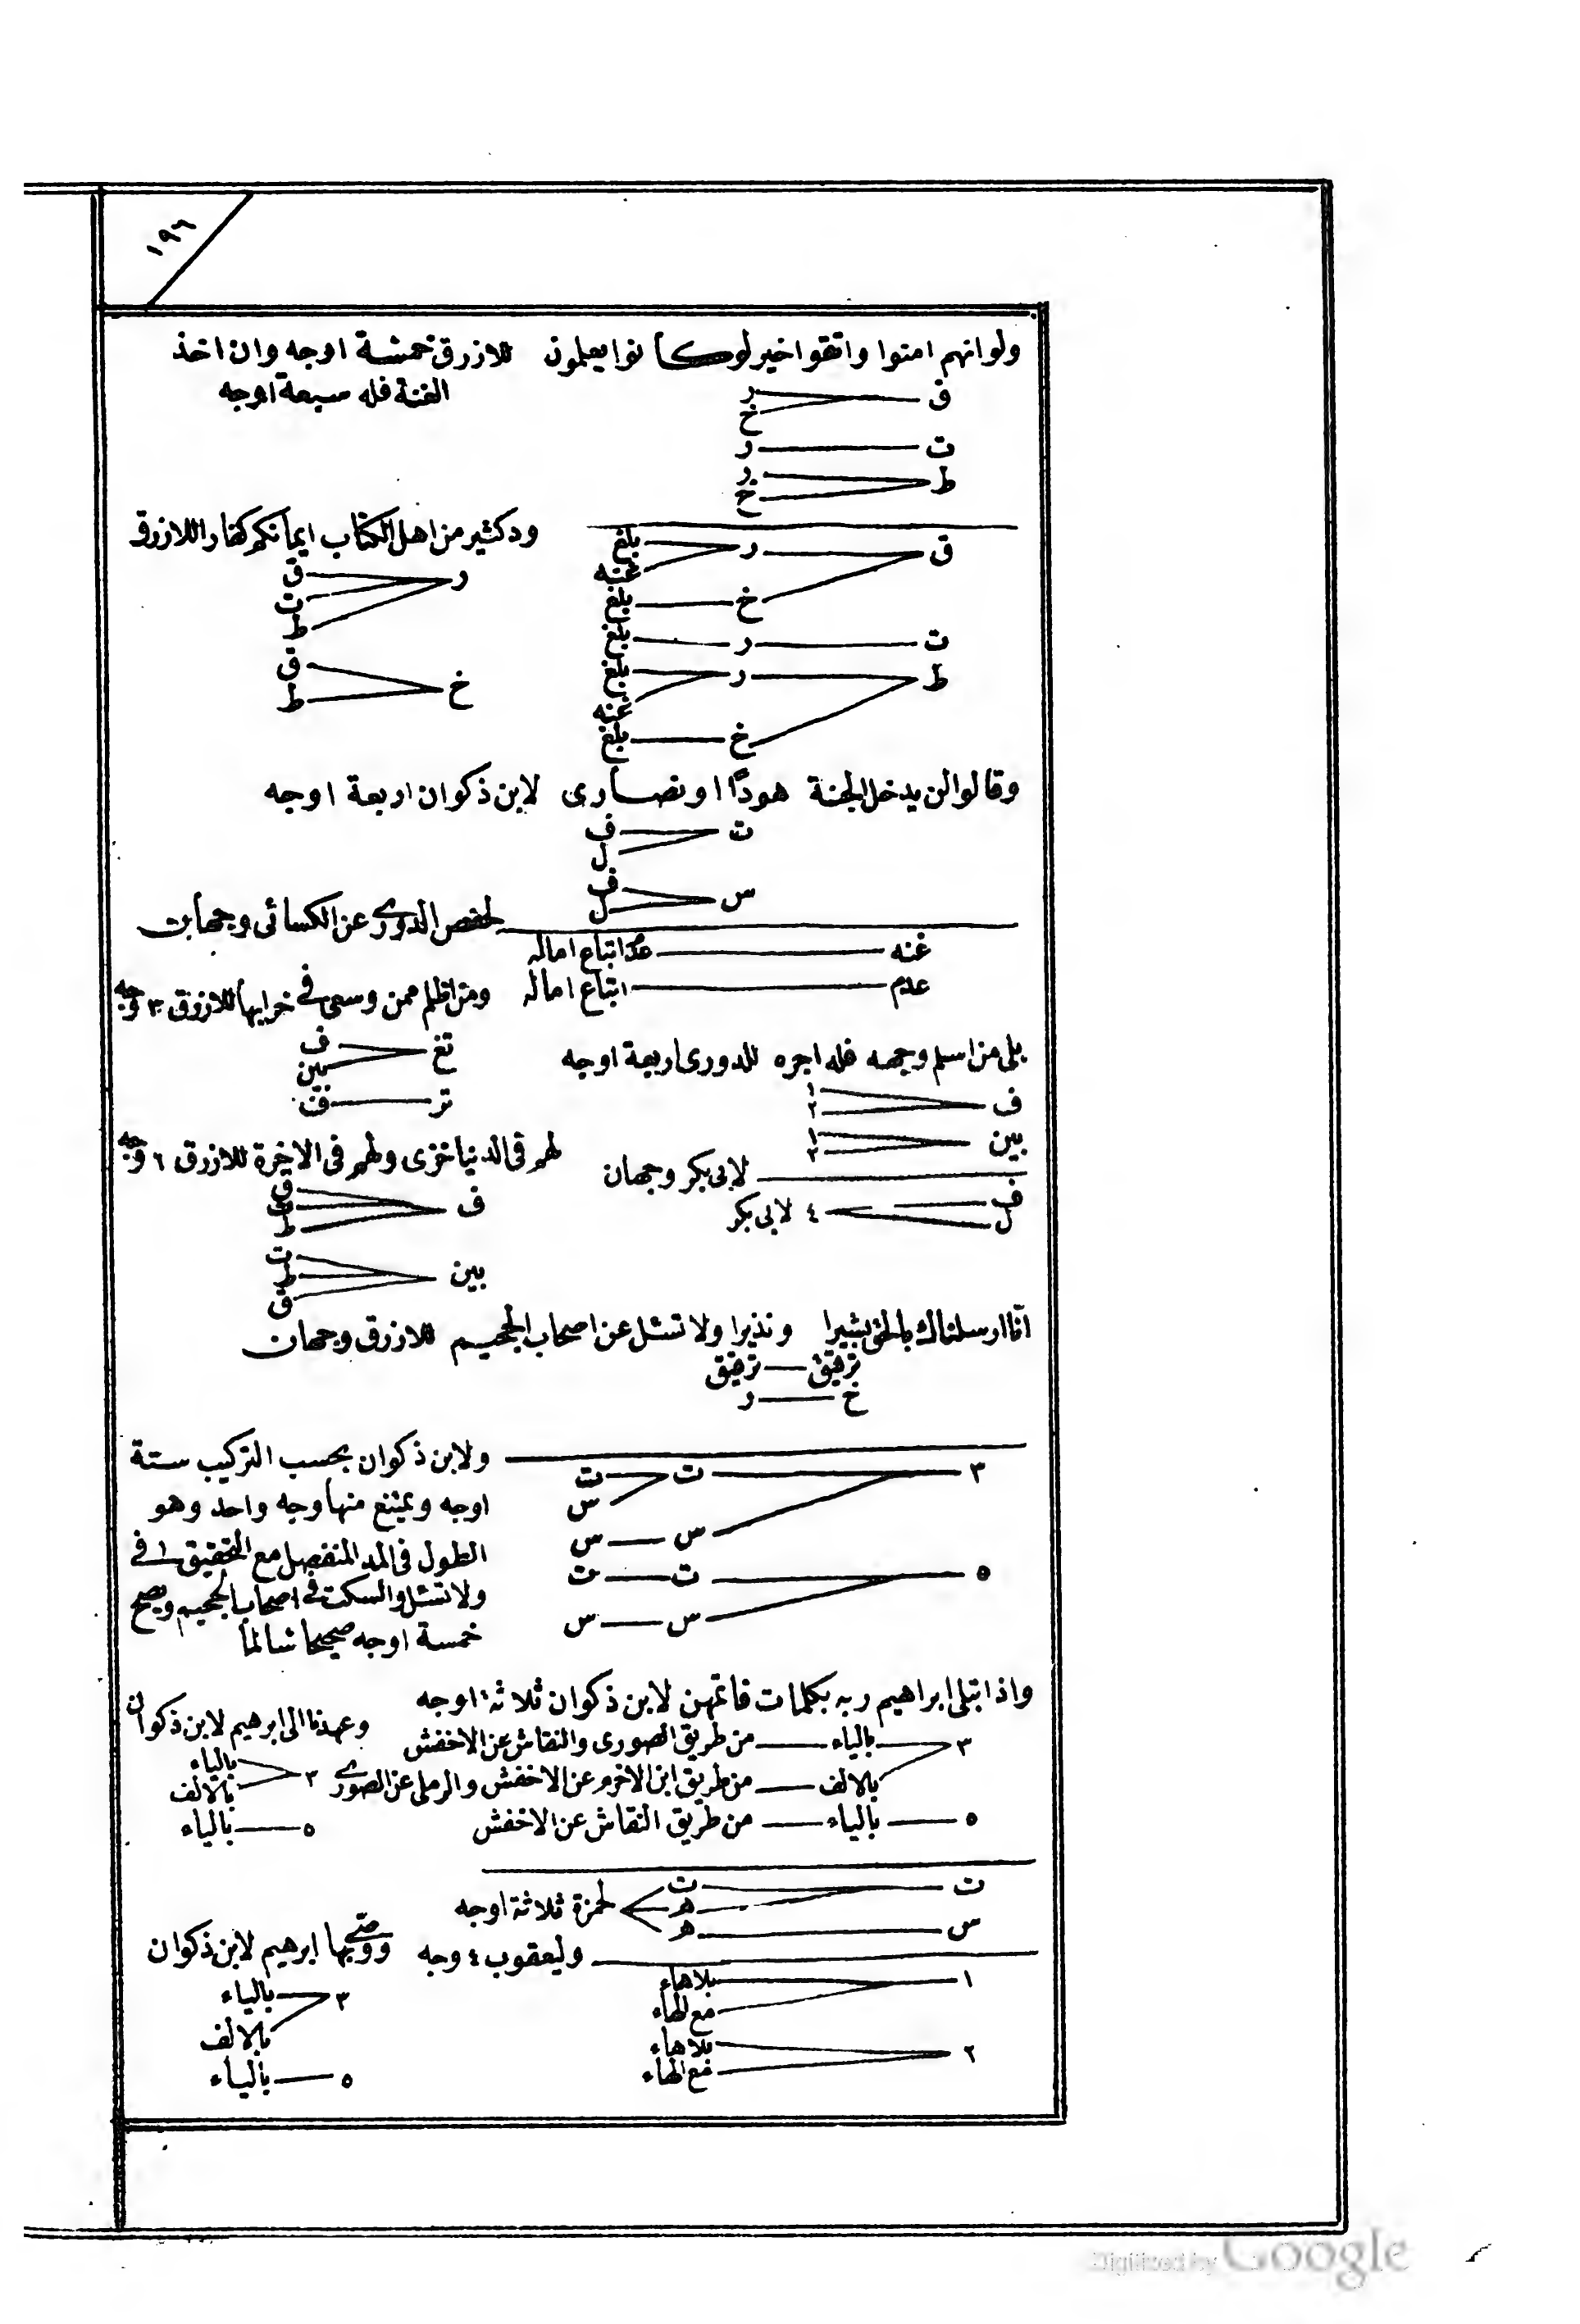 ١٩٦
ولوانهم امنوا واتقوا خير لوكانوا يعلمون للازرق خمسة اوجه وان اخذ
الغنة فله سبعة اوجه
ق ر
خ
ت ر
ط ر
خ
ود كثير من اهل الكتاب ايمانكم كفارا للازرق
ر ق
ت
ط
خ ق
ط
ق ر بلغ
غنه
خ بلغ
ت ر بلغ
ط ر بلغ
غنه
خ بلغ
وقالوا لن يدخل الجنة هودًا او نصارى لابن ذكوان اربعة اوجه
ت ف
ل
س ف
ل
لحفص الدورى عن الكسائى وجهانت
غنه عدم اتباع اماله
عدم اتباع اماله
ومن اظلم ممن وسعى فى خرابها للازرق ٣ وجه
تغ ف
بين
تر ف
بلى من اسلم وجهه فله اجره للدورى اربعة اوجه
ف ١
٢
بين ١
٢
لابى بكر وجهان
ف
ل ٤ لابى بكر
لهم فى الدنيا خزى ولهم فى الاخرة للازرق ٦ وجه
ف ق
ت
ط
بين ت
ط
ق
انا ارسلناك بالحق بشيرا ونذيرا ولا تسئل عن اصحاب الجحيم للازرق وجهان
ترقيق ترقيق
خ ر
ولابن ذكوان بحسب التركيب ستة
اوجه ويمتنع منها وجه واحد وهو
الطول فى المد المنفصل مع التحقيق فى
ولا تسئل والسكت فى اصحاب الجحيم ويصح
خمسة اوجه صحيحا سالما
٣ ت ت
س
س س
٥ ت ت
س س
واذ ابتلى ابراهيم ربه بكلمات فاتمهن لابن ذكوان ثلاثة اوجه
٣ بالياء من طريق الصورى والنقاش عن الاخفش
بالالف من طريق ابن الاخرم عن الاخفش والرملى عن الصورى
٥ بالياء من طريق النقاش عن الاخفش
وعهدنا الى ابرهيم لابن ذكوان
٣ بالياء
بالالف
٥ بالياء
ت ت
ه
س ه
لحمزة ثلاثة اوجه
وليعقوب ٤ وجه
١ بلا هاء
مع الهاء
٢ بلا هاء
مع الهاء
ووصى بها ابرهيم لابن ذكوان
٣ بالياء
بالالف
٥ بالياء
Digitized by Google